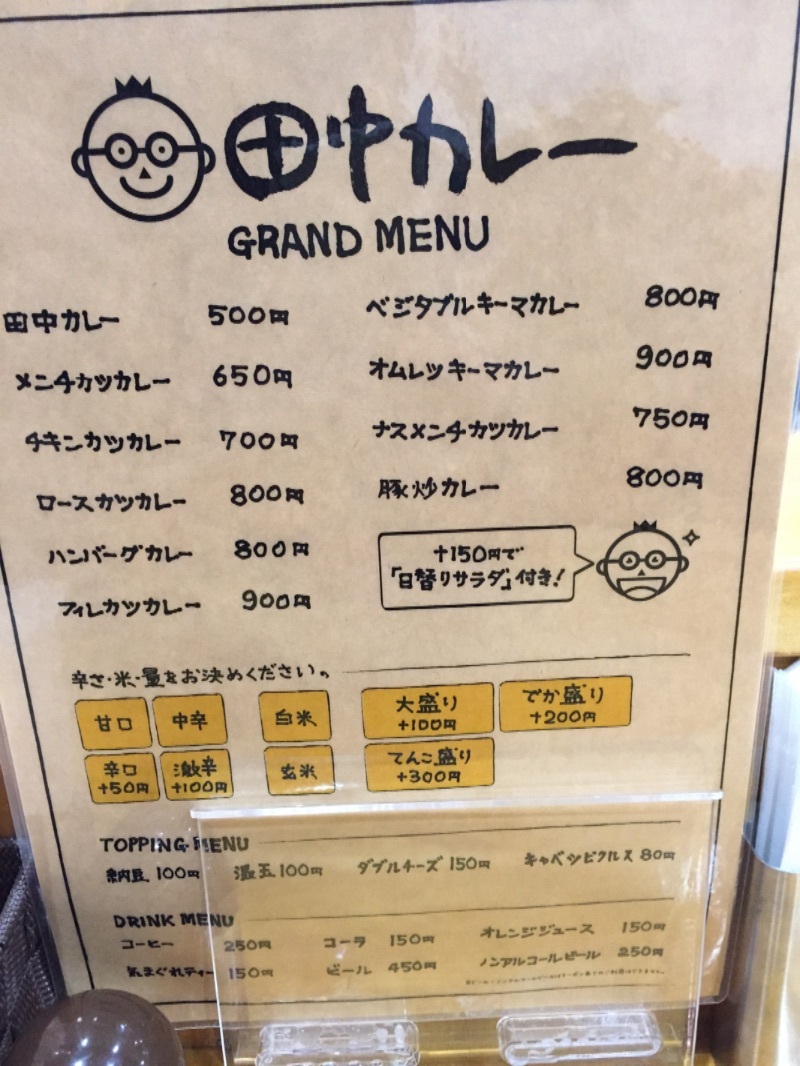 田中カレー
GRAND MENU
田中カレー 500円
メンチカツカレー 650円
チキンカツカレー 700円
ロースカツカレー 800円
ハンバーグカレー 800円
フィレカツカレー 900円
ベジタブルキーマカレー 800円
オムレツキーマカレー 900円
ナスメンチカツカレー 750円
豚炒カレー 800円
+150円で
「日替りサラダ」付き!
辛さ・米・量をお決めください。
甘口 中辛 白米 大盛り +100円 でか盛り +200円
辛口 +50円 激辛 +100円 玄米 てんこ盛り +300円
TOPPING MENU
納豆 100円 温玉 100円 ダブルチーズ 150円 キャベツピクルス 80円
DRINK MENU
コーヒー 250円 コーラ 150円 オレンジジュース 150円
気まぐれティー 150円 ビール 450円 ノンアルコールビール 250円